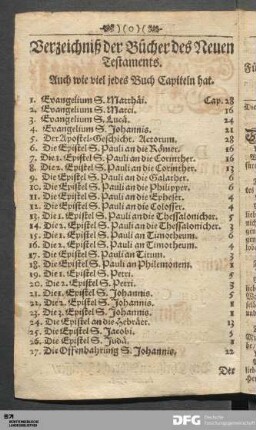 )(0)(
Verzeichniß der Bücher des Neuen
Testaments.
Auch wie viel jedes Buch Capiteln hat.
1. Evangelium S. Matthäi. Cap. 28
2. Evangelium S. Marci. 16
3. Evangelium S. Lucä. 24
4. Evangelium S. Johannis. 21
5. Der Apostel-Geschicht. Actorum. 28
6. Die Epistel S. Pauli an die Römer. 16
7. Die 1. Epistel S. Pauli an die Corinther. 16
8. Die 2. Epistel S. Pauli an die Corinther. 13
9. Die Epistel S. Pauli an die Galather. 6
10. Die Epistel S. Pauli an die Philipper. 6
11. Die Epistel S. Pauli an die Epheser. 4
12. Die Epistel S. Pauli an die Colosser. 4
13. Die 1. Epistel S. Pauli an die Thessalonicher. 5
14. Die 2. Epistel S. Pauli an die Thessalonicher. 3
15. Die 1. Epistel S. Pauli an Timotheum. 6
16. Die 2. Epistel S. Pauli an Timotheum. 4
17. Die Epistel S. Pauli an Titum. 3
18. Die Epistel S. Pauli an Philemonem. 1
19. Die 1. Epistel S. Petri. 5
20. Die 2. Epistel S. Petri. 3
21. Die 1. Epistel S. Johannis. 5
22. Die 2. Epistel S. Johannis. 1
23. Die 3. Epistel S. Johannis. 1
24. Die Epistel an die Hebräer. 13
25. Die Epistel S. Jacobi. 5
26. Die Epistel S. Judä. 1
27. Die Offenbahrung S. Johannis. 22
Der
DFG
Deutsche
Forschungsgemeinschaft